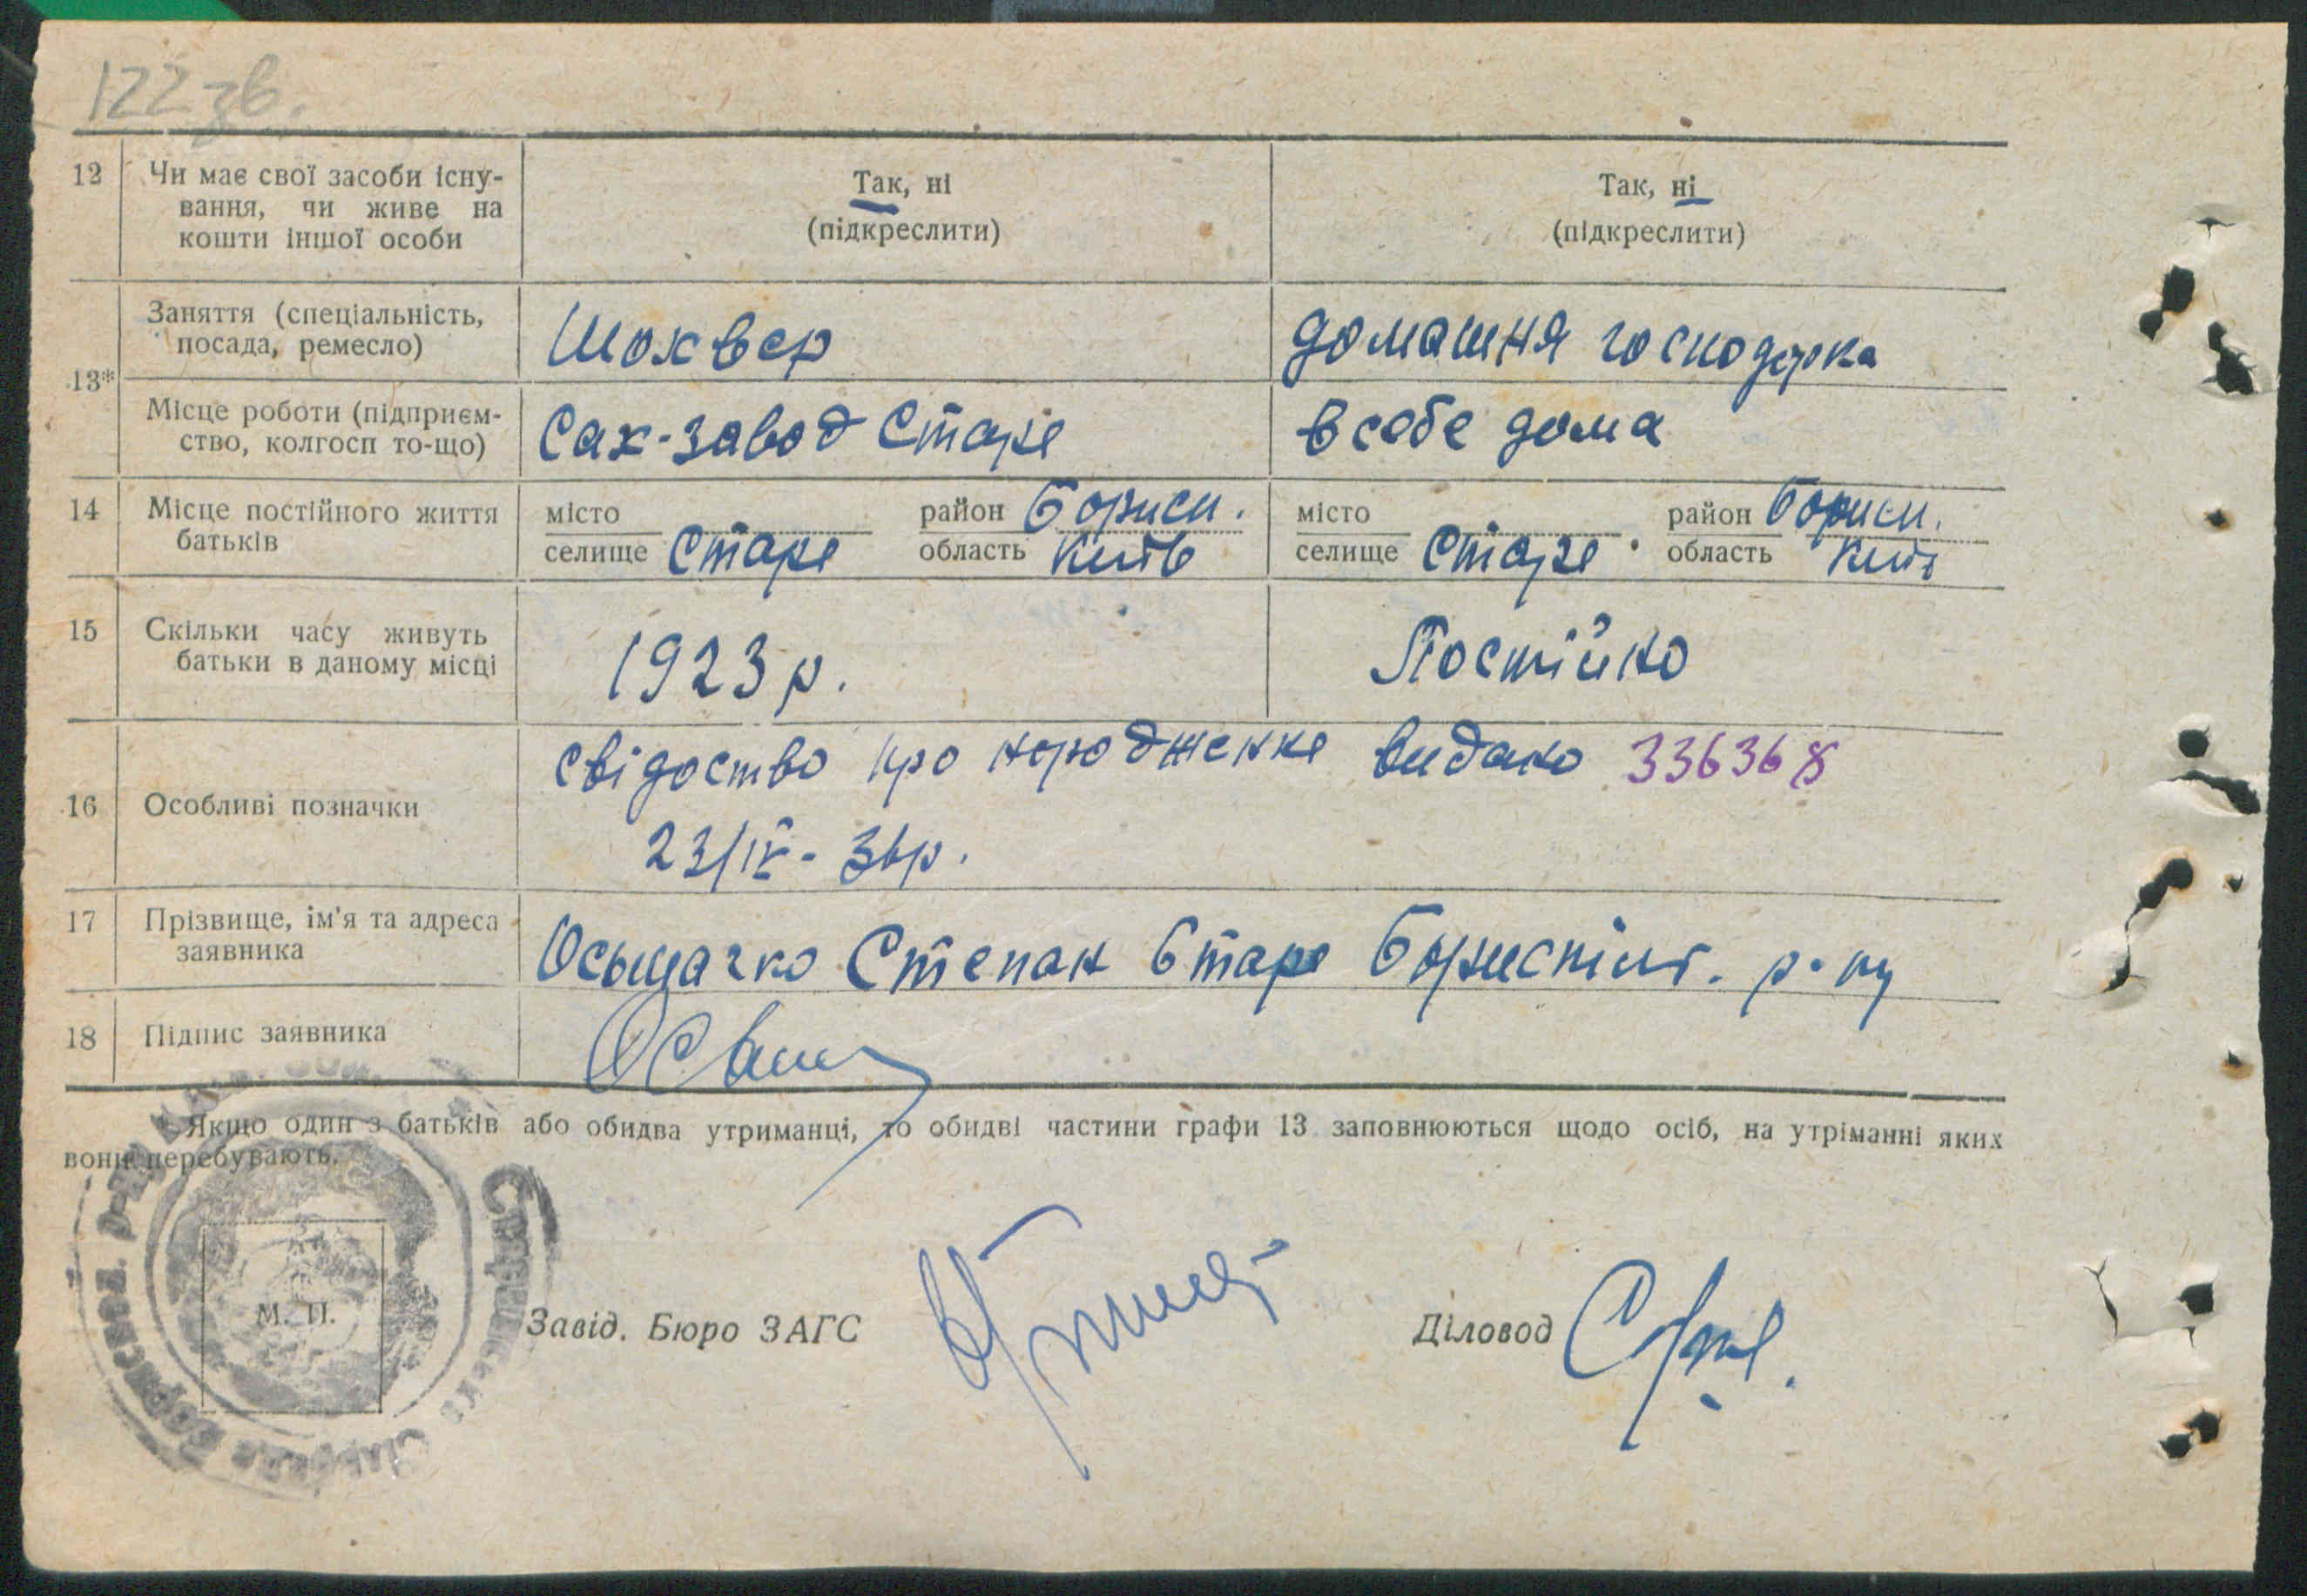 122 зв.
12 Чи має свої засоби існу- Так, ні Так, ні
вання, чи живе на (підкреслити) (підкреслити)
кошти іншої особи
13* Заняття (спеціальність, Шохвер домашня господорка
посада, ремесло)
Місце роботи (підприєм- Сах-завод Старе в себе дома
ство, колгосп то-що)
14 Місце постійного життя місто район Борисп. місто район Борисп.
батьків селище Старе область Київ селище Старе область Київ
15 Скільки часу живуть 1923 р. Постійно
батьки в даному місці
16 Особливі позначки свідоство про народження видано 336368
23/IV-
17 Прізвище, ім'я та адреса Степан Старе Бориспіль. р-ну
заявника
18 Підпис заявника
Якщо один з батьків або обидва утриманці, то обидві частини графи 13 заповнюються щодо осіб, на утріманні яких
вони перебувають.
М. П.
Завід. Бюро ЗАГС Діловод